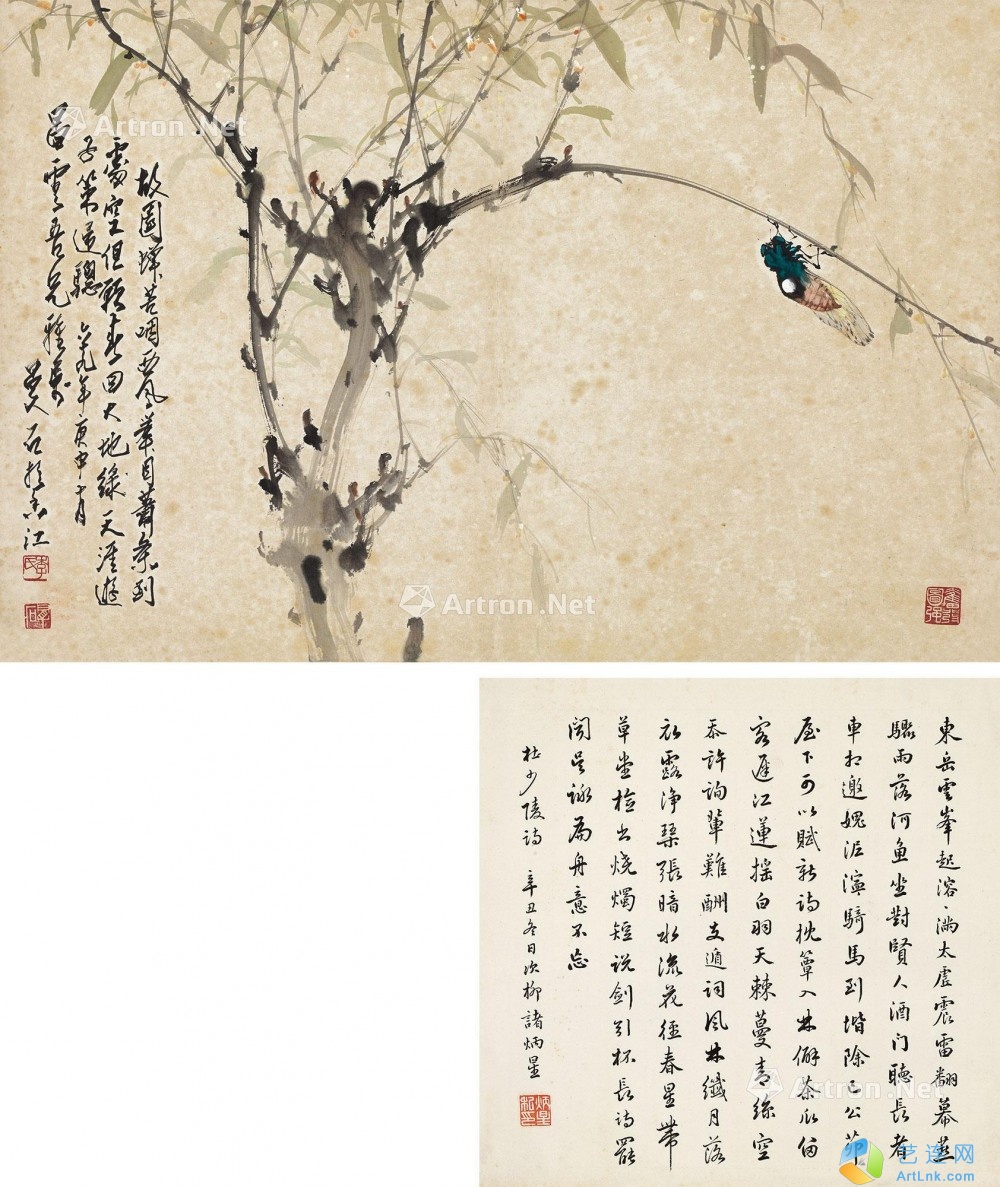 故園蟬苦咽西風舉目蕭條到
處空但願春回大地綠天涯遊
子策驄 六九年庚申十月
雲吾兄雅屬
石於香江
東岳雲峯起溶、滿太虛震雷翻幕燕
驟雨落河魚坐對賢人酒门聽長者
車相邀媿泥濘騎馬到堦除巳公茅
屋下可以賦新詩枕簟入林僻茶瓜留
客遲江蓮搖白羽天棘蔓青絲空
忝許詢輩難酬支遁詞風林纖月落
衣露淨琴張暗水流花徑春星帶
草堂檢書燒燭短說劍引杯長詩罷
聞吳詠扁舟意不忘
杜少陵詩 辛丑冬日次柳諸炳星
Artron.Net
Artron.Net
Artron.Net
Artron.Net
Artron.Net
艺连网
ArtLnk.com